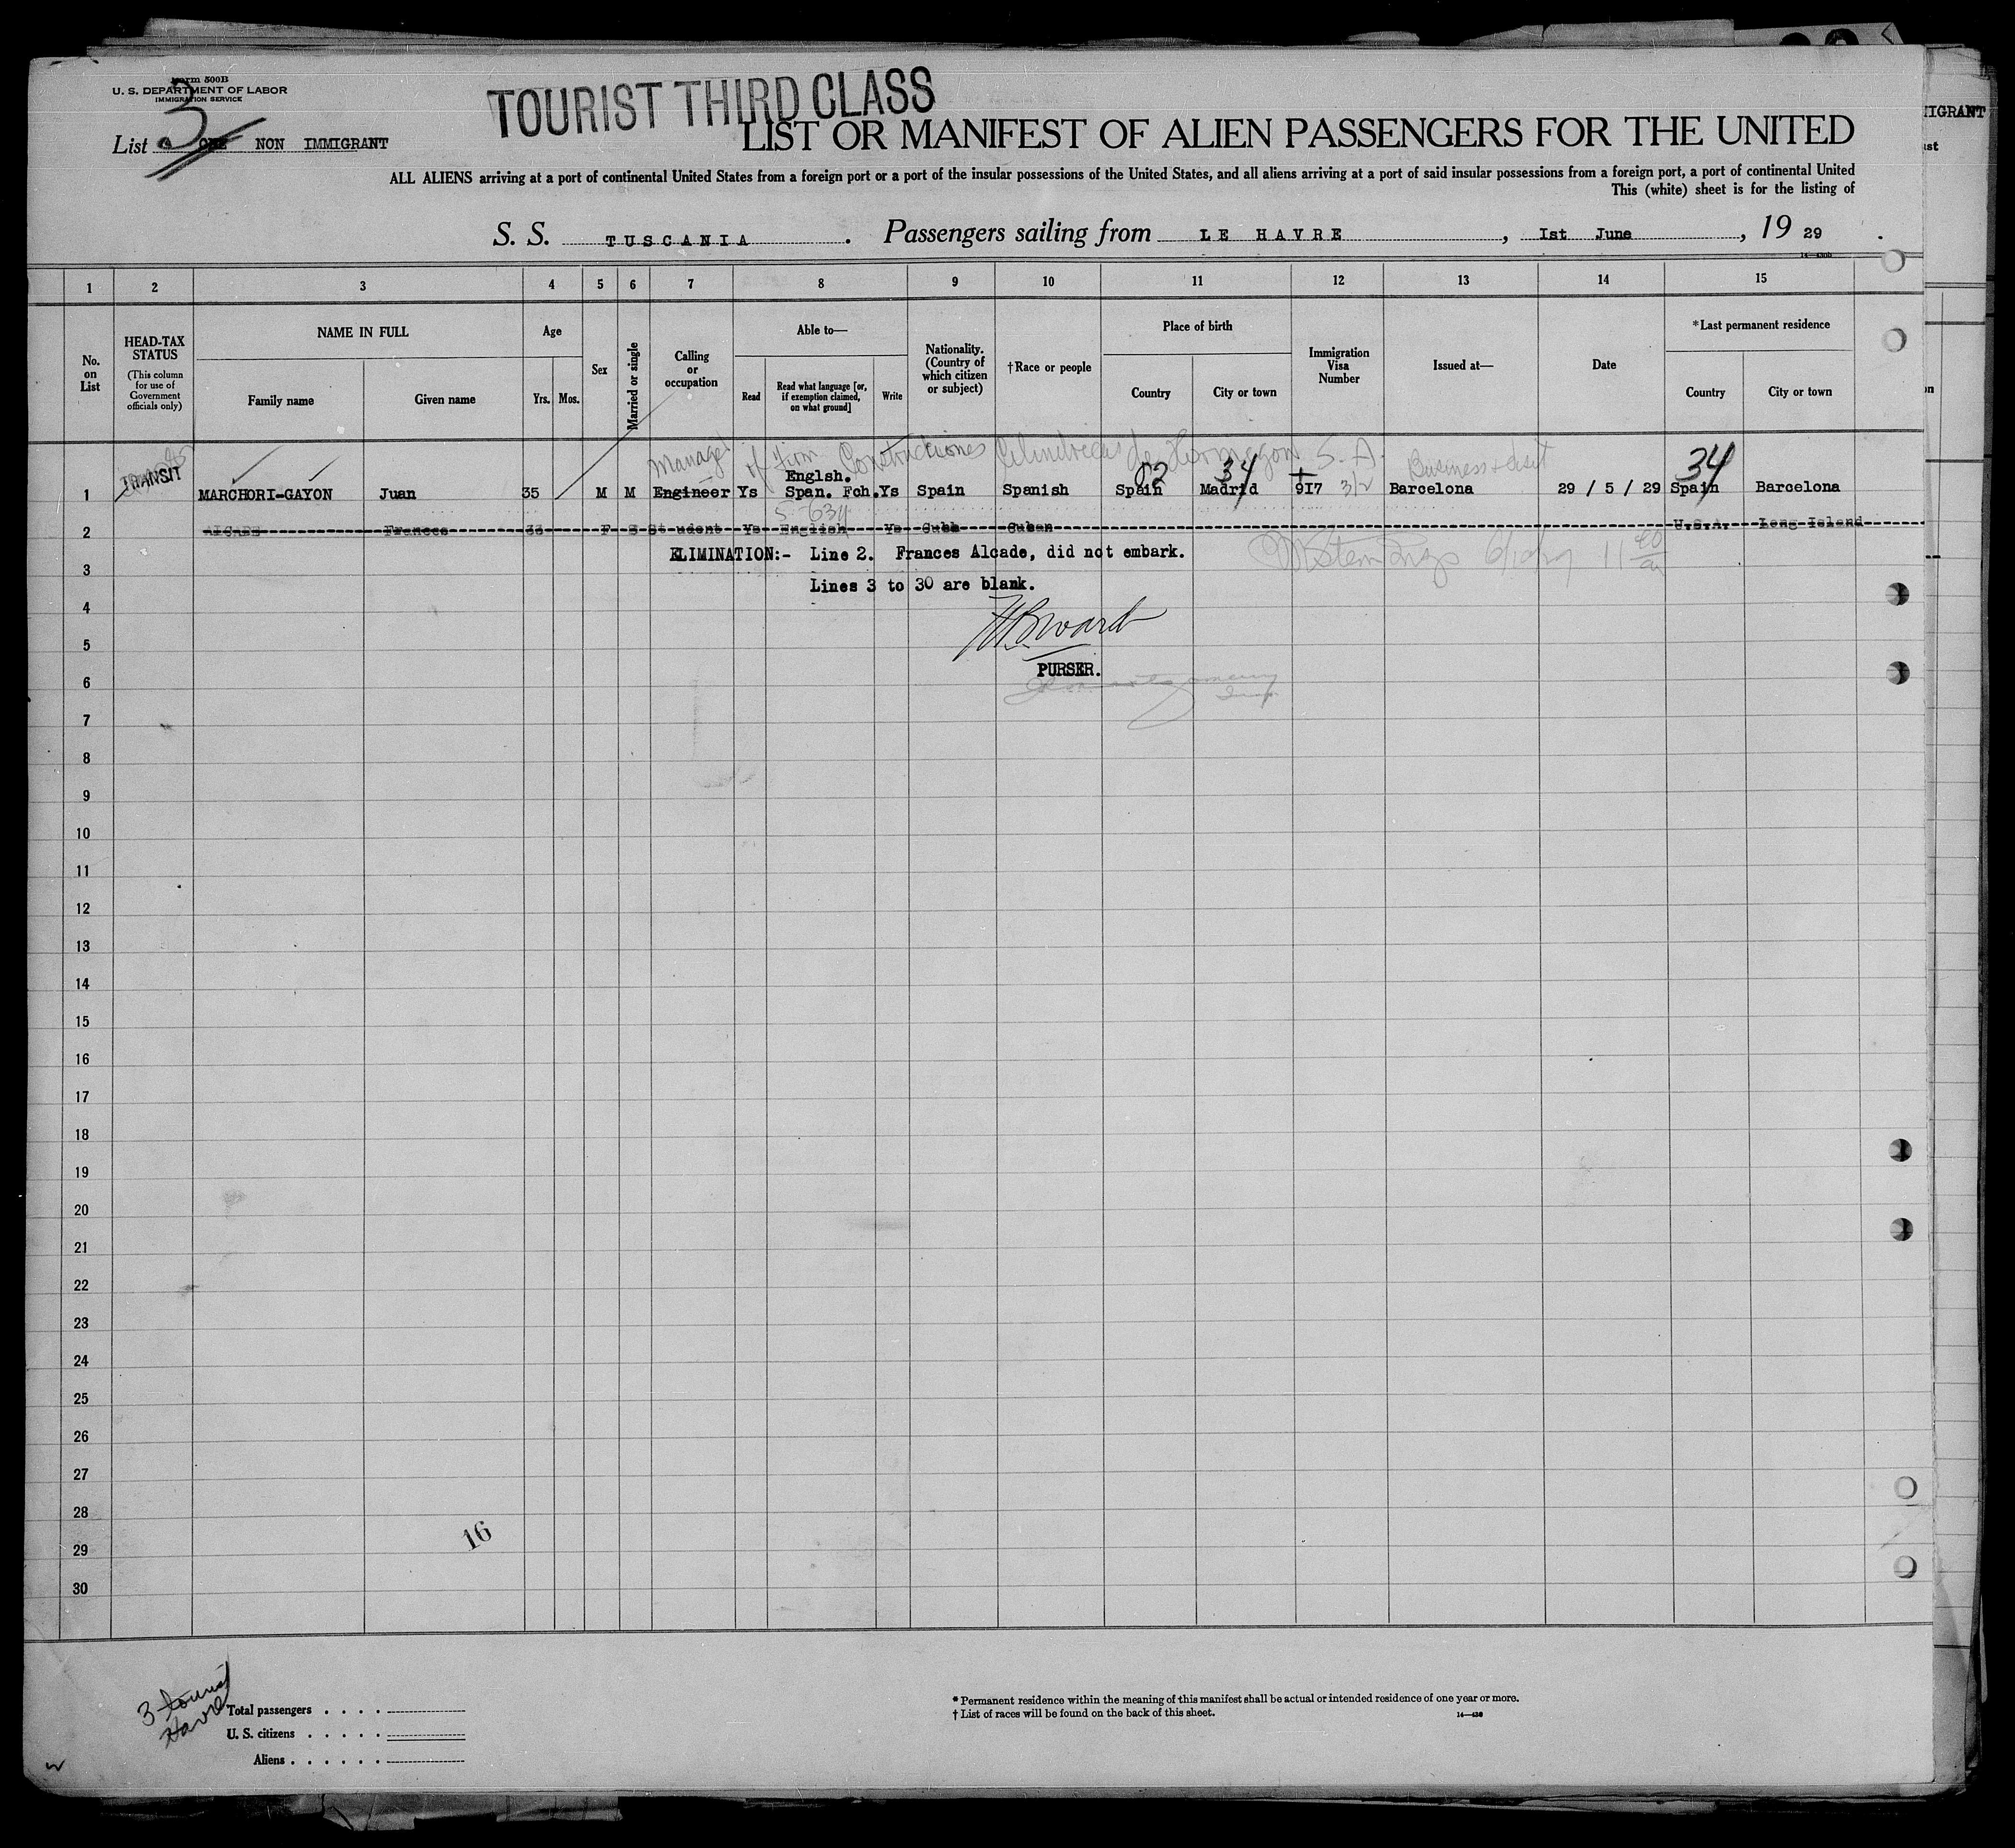 Form 500B
U. S. DEPARTMENT OF LABOR
IMMIGRATION SERVICE
TOURIST THIRD CLASS
List 3 ONE NON IMMIGRANT
LIST OR MANIFEST OF ALIEN PASSENGERS FOR THE UNITED
ALL ALIENS arriving at a port of continental United States from a foreign port or a port of the insular possessions of the United States, and all aliens arriving at a port of said insular possessions from a foreign port, a port of continental United
This (white) sheet is for the listing of
S. S. TUSCANIA . Passengers sailing from LE HAVRE , Ist June , 19 29 .
1 2 3 4 5 6 7 8 9 10 11 12 13 14 15
No. on List
HEAD-TAX STATUS
(This column for use of Government officials only)
NAME IN FULL
Family name Given name
Age
Yrs. Mos.
Sex
Married or single
Calling or occupation
Able to—
Read
Read what language [or, if exemption claimed, on what ground]
Write
Nationality. (Country of which citizen or subject)
†Race or people
Place of birth
Country City or town
Immigration Visa Number
Issued at—
Date
*Last permanent residence
Country City or town
Manager of Firm Construcciones Cilindricas de Hormigon S. A.
Business & visit
TRANSIT
Englsh. 02 34 34
1 MARCHORI-GAYON Juan 35 M M Engineer Ys Span. Fch. Ys Spain Spanish Spain Madrid 917 3/2 Barcelona 29 / 5 / 29 Spain Barcelona
2 ALCADE Frances 33 F S Student Ys English Ys Cuba Cuban U.S.A. Long Island
ELIMINATION:- Line 2. Frances Alcade, did not embark.
3
Lines 3 to 30 are blank.
4
5
PURSER.
6
7
8
9
10
11
12
13
14
15
16
17
18
19
20
21
22
23
24
25
26
27
28
16
29
30
3 tourist
Havre
Total passengers
U. S. citizens
Aliens
* Permanent residence within the meaning of this manifest shall be actual or intended residence of one year or more.
† List of races will be found on the back of this sheet.
14—430
IGRANT